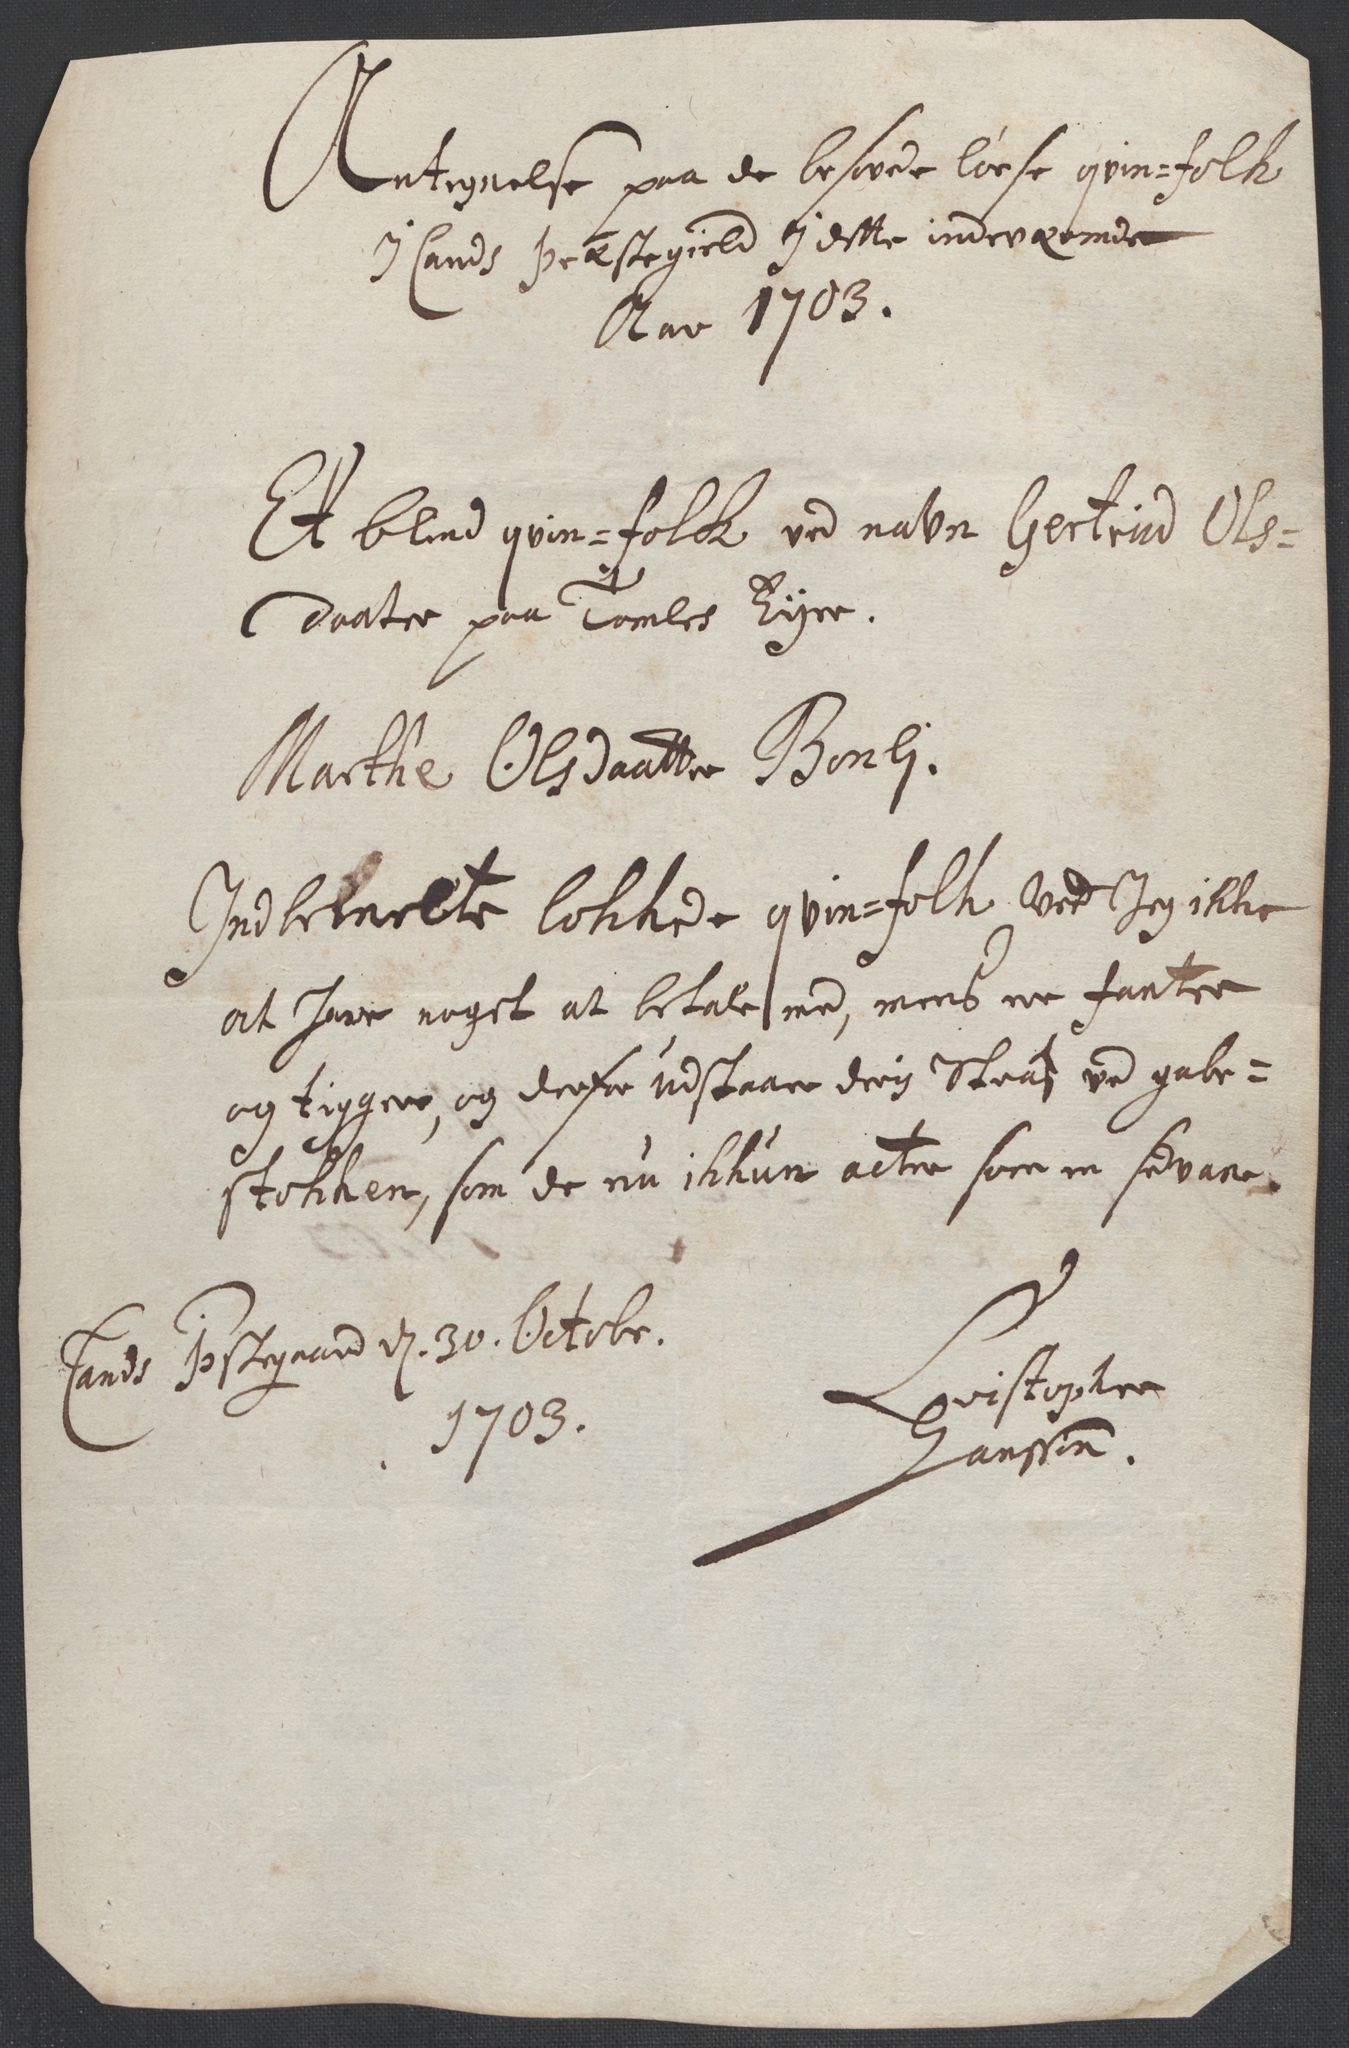 Antegnelse paa de besovede løese qvin=folk
J Lands Præstegield J dette indeværende
Aar 1703.
Et blind qvin=folk ved navn Gertrud Ols=
daater paa Tomles Eyer.
Marthe Olsdaatter Bonli.
Indbemelte lokkede qvin=folk ved Jeg ikke
at have noget at betale med, mens er fanter
og tiggere, og derfor udstaaer deris Straf ved gabe=
stokken, som de nu ikkun acter som en sedvane.
Lands Pstegaard d. 30. Octobr.
1703.
Christopher
Hanssøn.